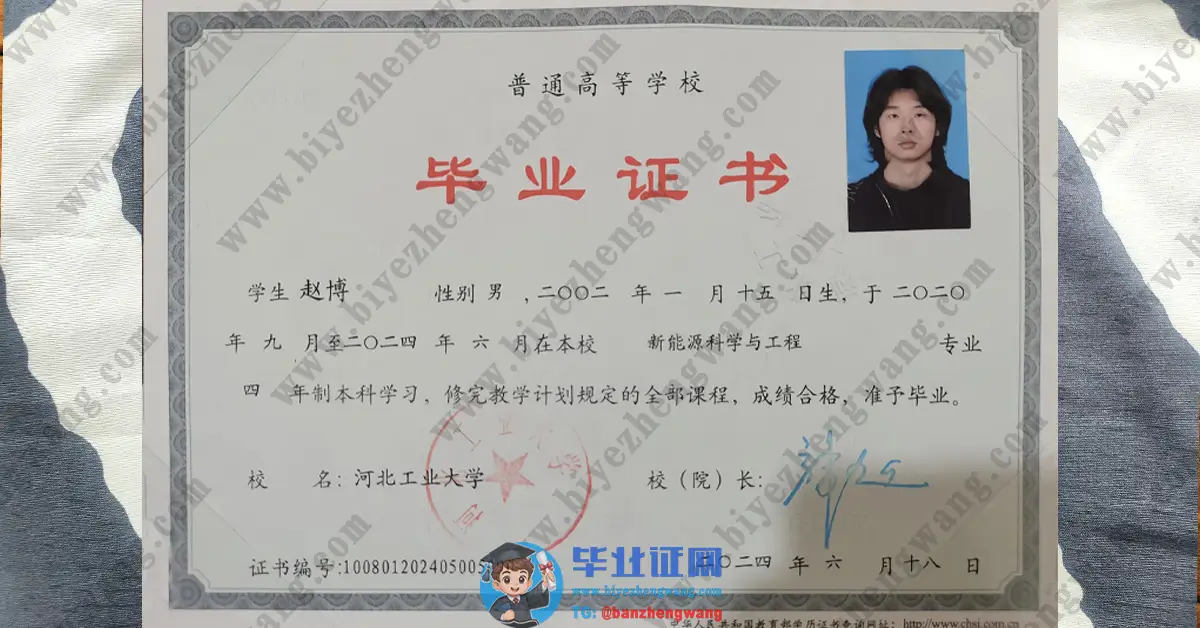 普通高等学校
毕业证书
学生 赵博 性别 男 ,二〇〇二 年 一 月 十五 日生, 于 二〇二〇
年 九 月至二〇二四 年 六 月在本校 新能源科学与工程 专业
四 年制本科学习, 修完教学计划规定的全部课程, 成绩合格, 准予毕业。
校 名: 河北工业大学 校 (院) 长:
证书编号:10080120240500 二〇二四 年 六 月十八 日
毕业证网
www.biyezhengwang.com
TG: @banzhengwang
中华人民共和国教育部学历证书查询网址: http://www.chsi.com.cn
www.biyezhengwang.com